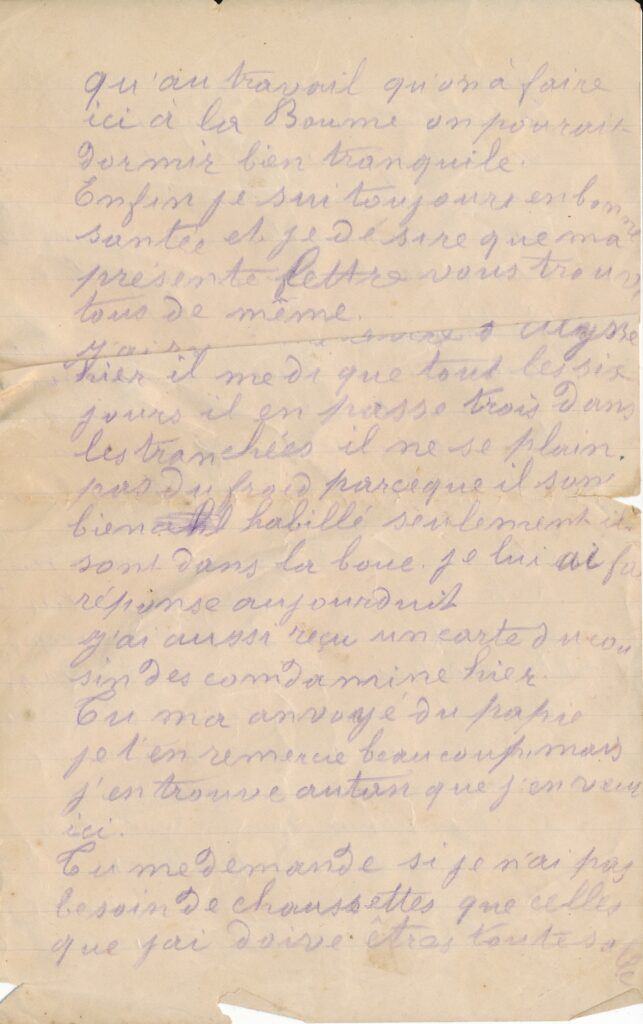 qu'au travail qu'on à faire
ici à la Boume on pourait
dormir bien tranquile.
Enfin je sui toujours en bonne
santée et je désire que ma
présente lettre vous trouv
tous de même.
j'ai
hier il me di que tout les six
jours il en passe trois dans
les tranchées il ne se plain
pas du froid parceque il son
bien habillé seulement il
sont dans la boue. je lui ai fa
réponse aujourduit
j'ai aussi reçu un carte du cou
sin des comdamine hier.
Tu ma anvoyé du papie
je t'en remercie beaucoup, mais
j'en trouve autan que j'en veux
ici.
Tu me demande si je n'ai pas
besoin de chaussettes que celles
que j'ai doive êtres toute